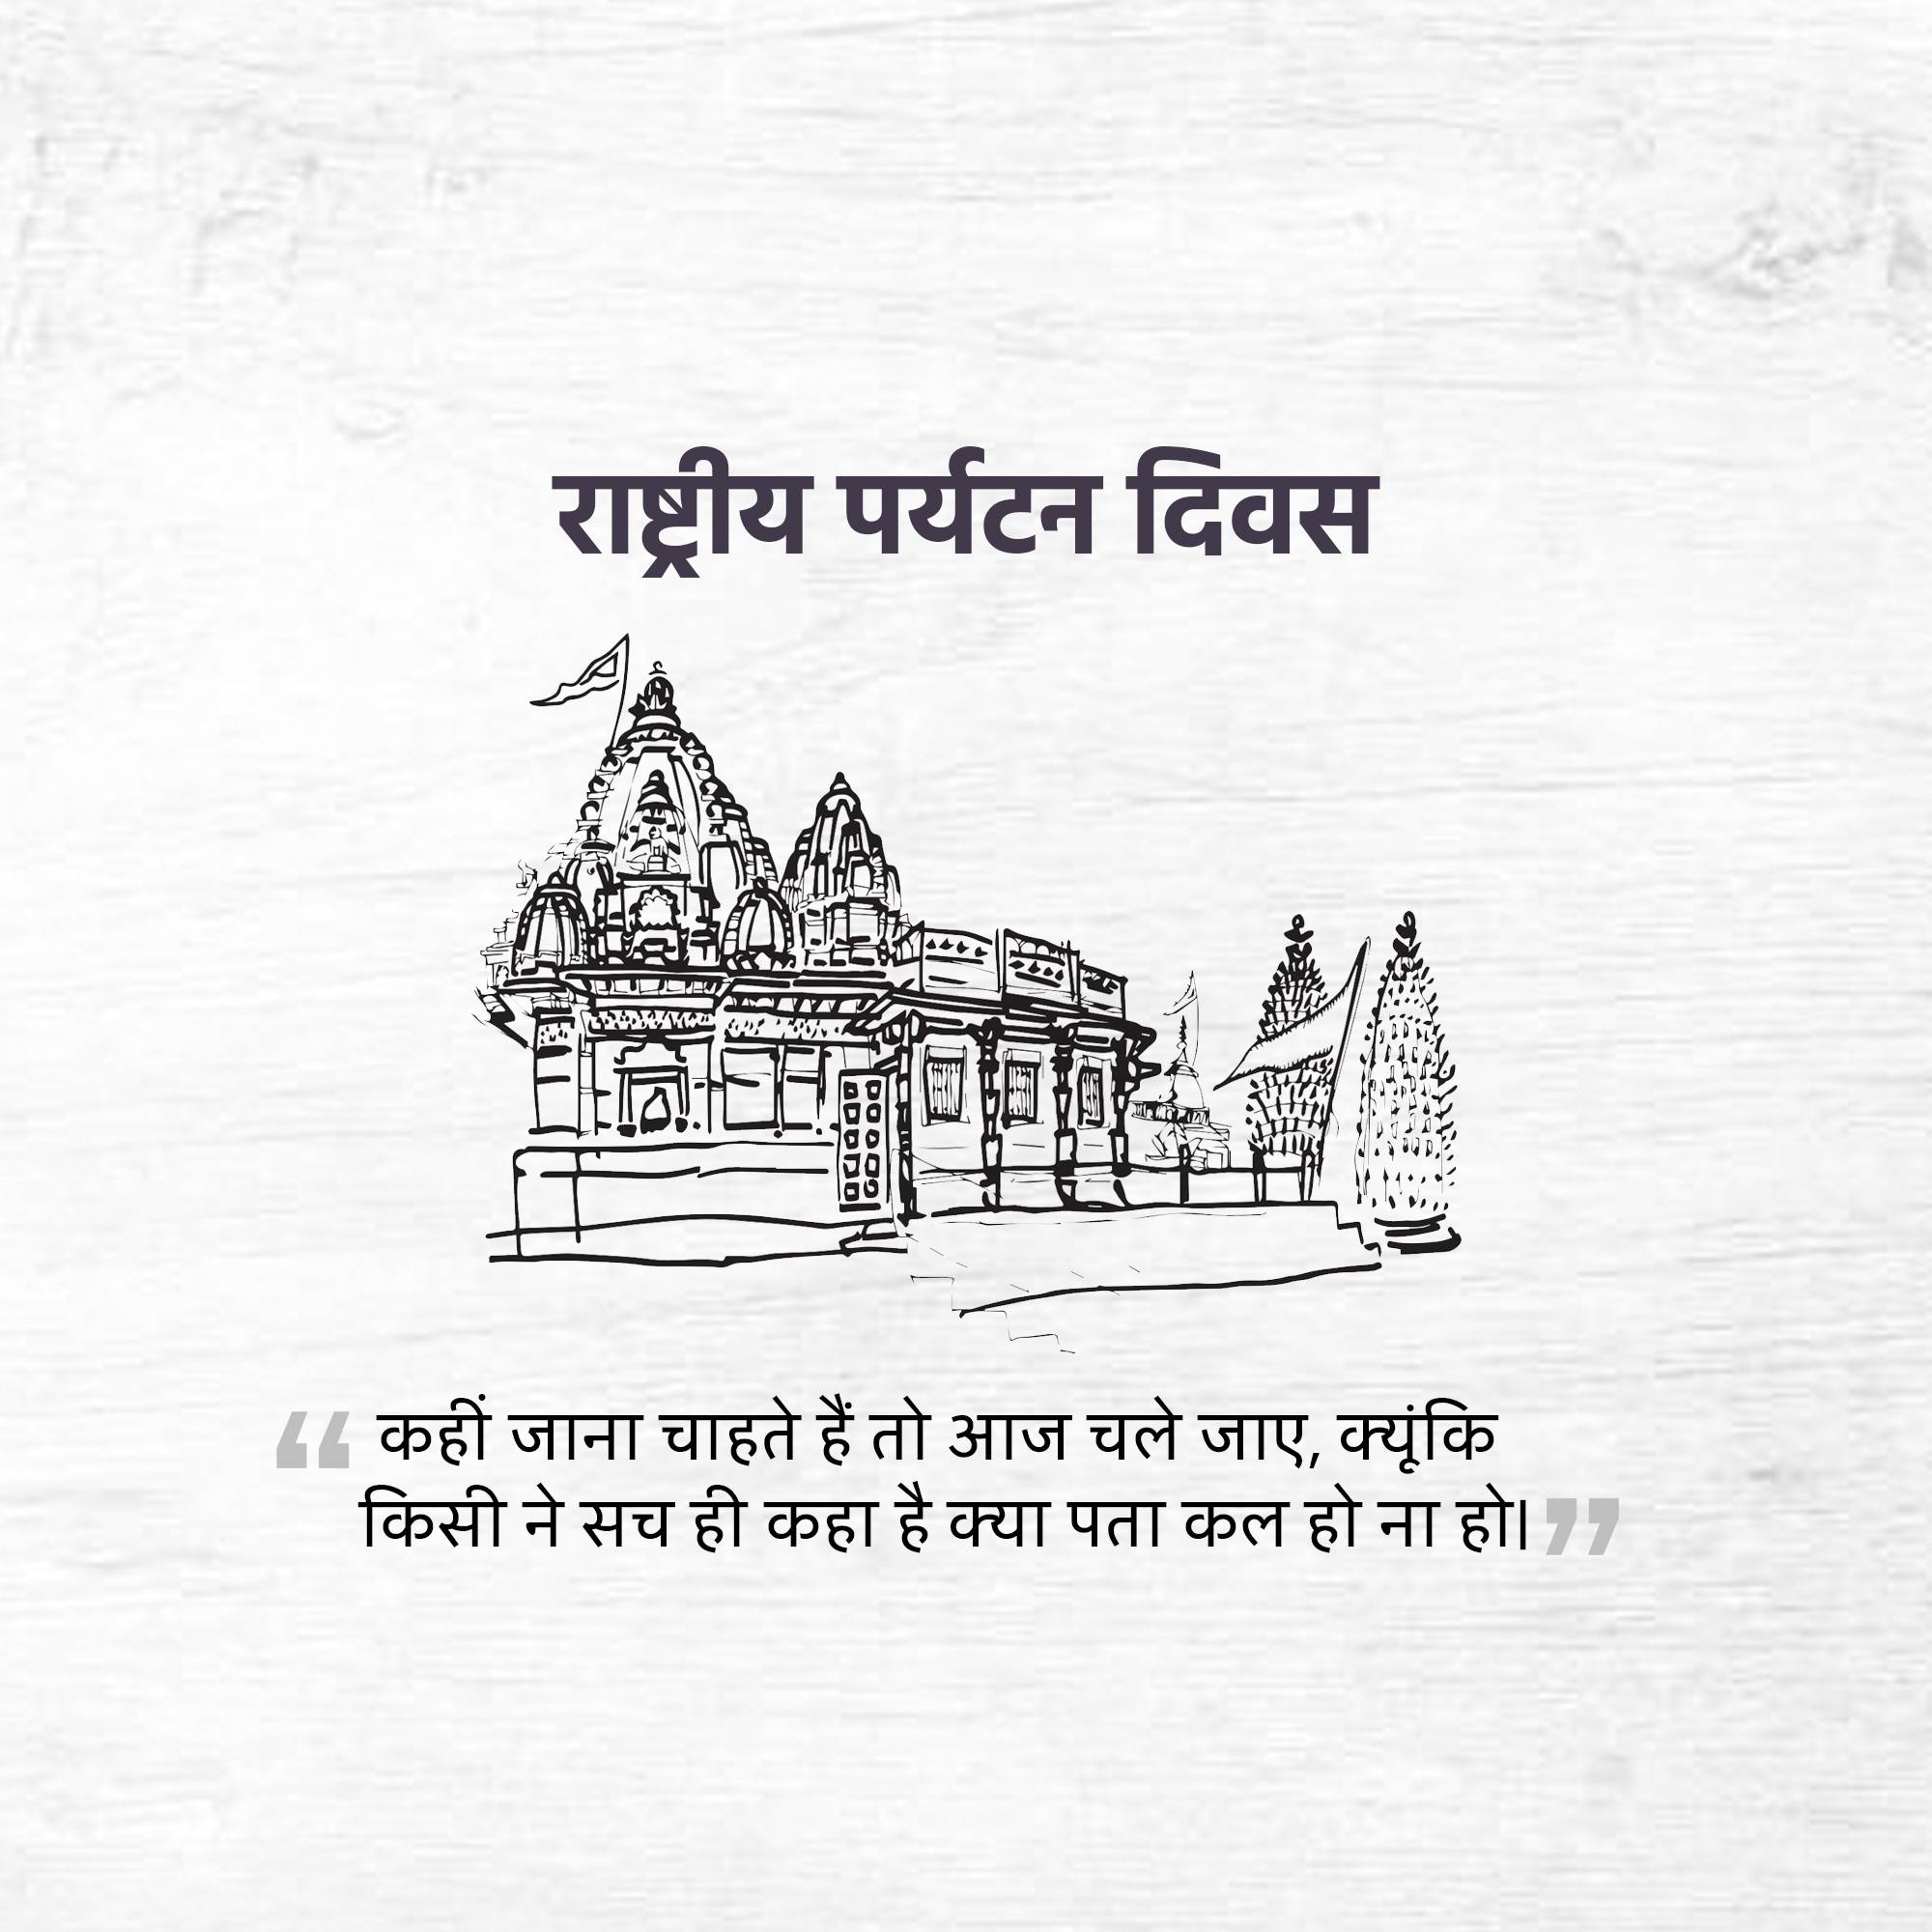 राष्ट्रीय पर्यटन दिवस
“ कहीं जाना चाहते हैं तो आज चले जाए, क्यूंकि
किसी ने सच ही कहा है क्या पता कल हो ना हो। ”